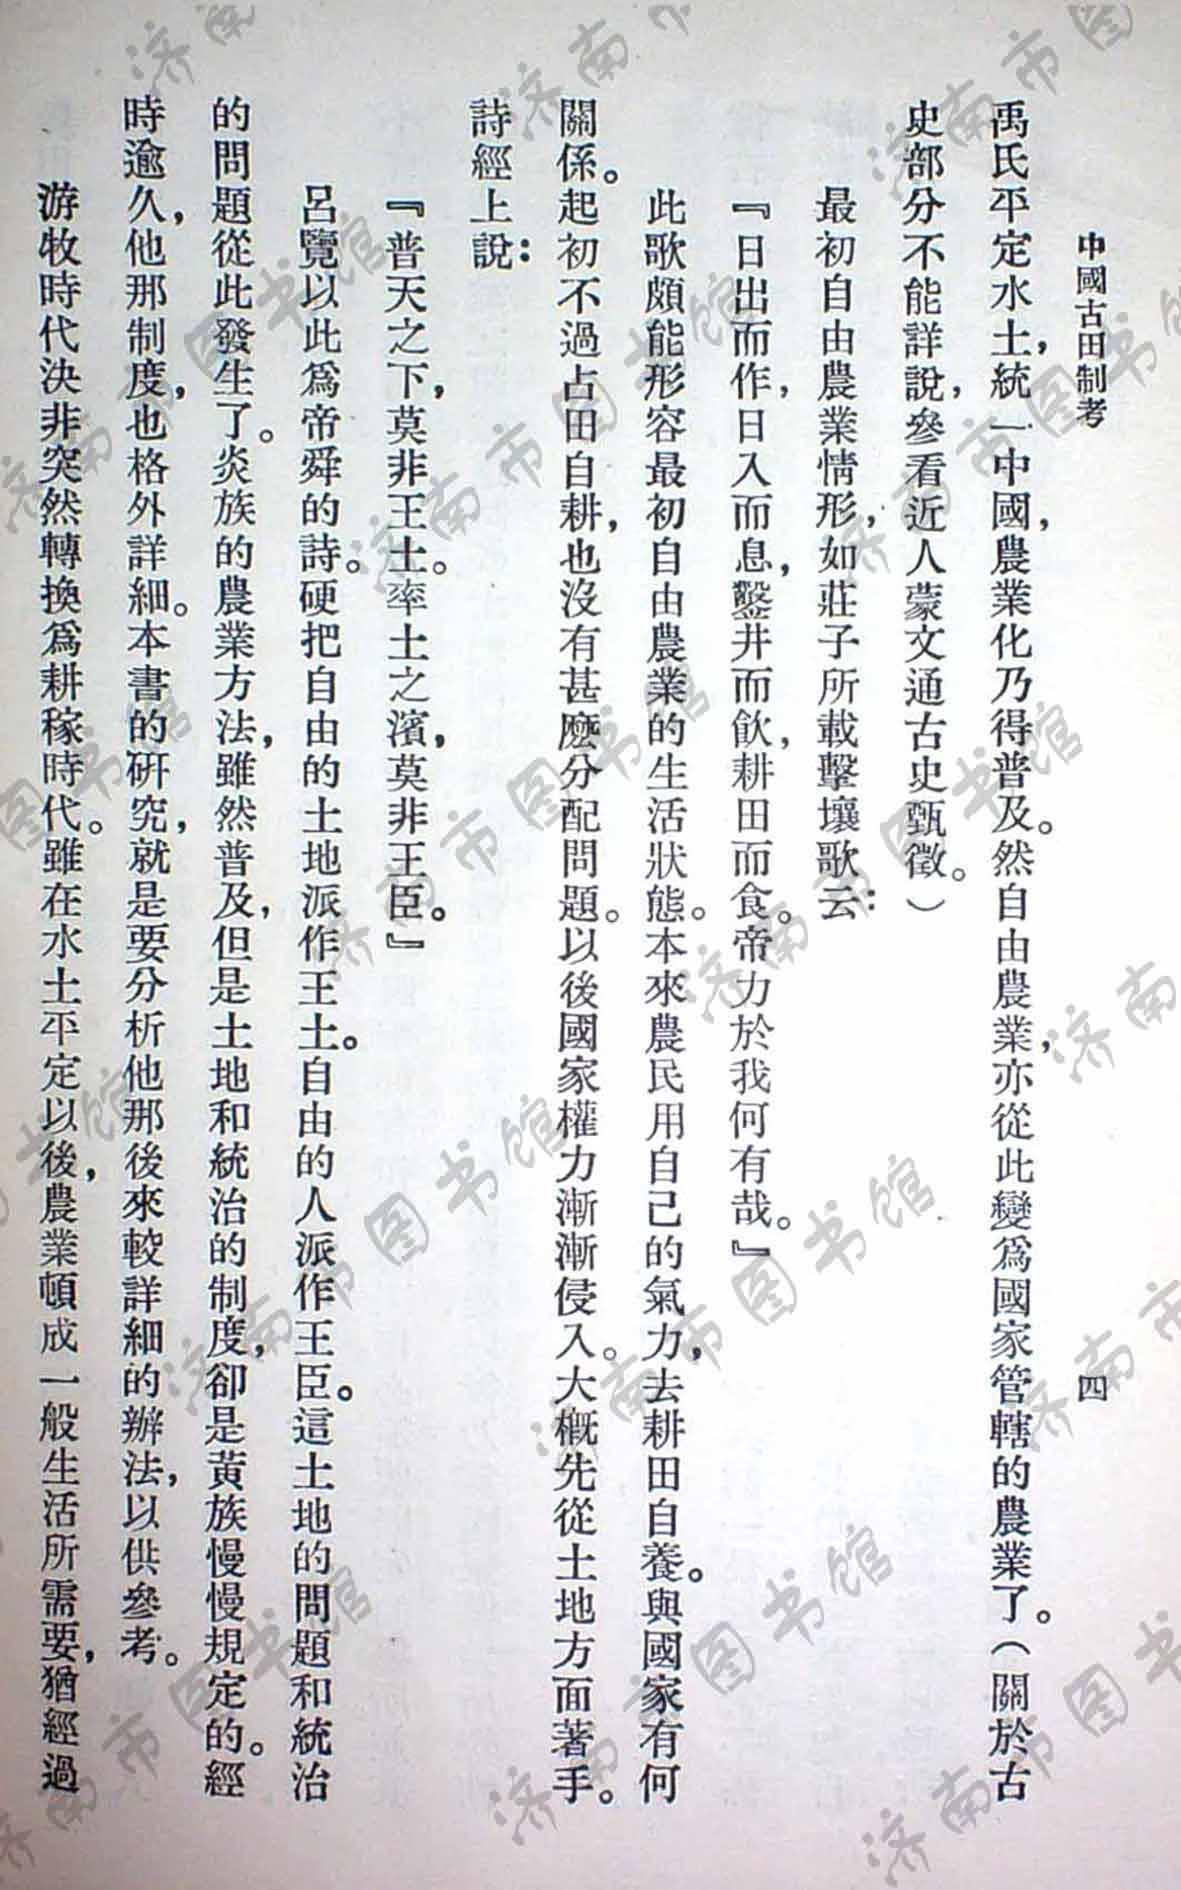 中國古田制考
四
禹氏平定水土，統一中國，農業化乃得普及。然自由農業，亦從此變爲國家管轄的農業了。（關於古
史部分不能詳說，參看近人蒙文通古史甄徵。）
最初自由農業情形，如莊子所載擊壤歌云：
『日出而作，日入而息，鑿井而飲，耕田而食。帝力於我何有哉。』
此歌頗能形容最初自由農業的生活狀態。本來農民用自己的氣力，去耕田自養。與國家有何
關係。起初不過占田自耕，也沒有甚麼分配問題。以後國家權力漸漸侵入。大概先從土地方面著手。
詩經上說：
『普天之下，莫非王土。率土之濱，莫非王臣。』
呂覽以此爲帝舜的詩。硬把自由的土地派作王土。自由的人派作王臣。這土地的問題和統治
的問題從此發生了。炎族的農業方法，雖然普及，但是土地和統治的制度，卻是黃族慢慢規定的。經
時逾久，他那制度，也格外詳細。本書的硏究，就是要分析他那後來較詳細的辦法，以供參考。
游牧時代決非突然轉換爲耕稼時代。雖在水土平定以後，農業頓成一般生活所需要，猶經過
济南市图书馆